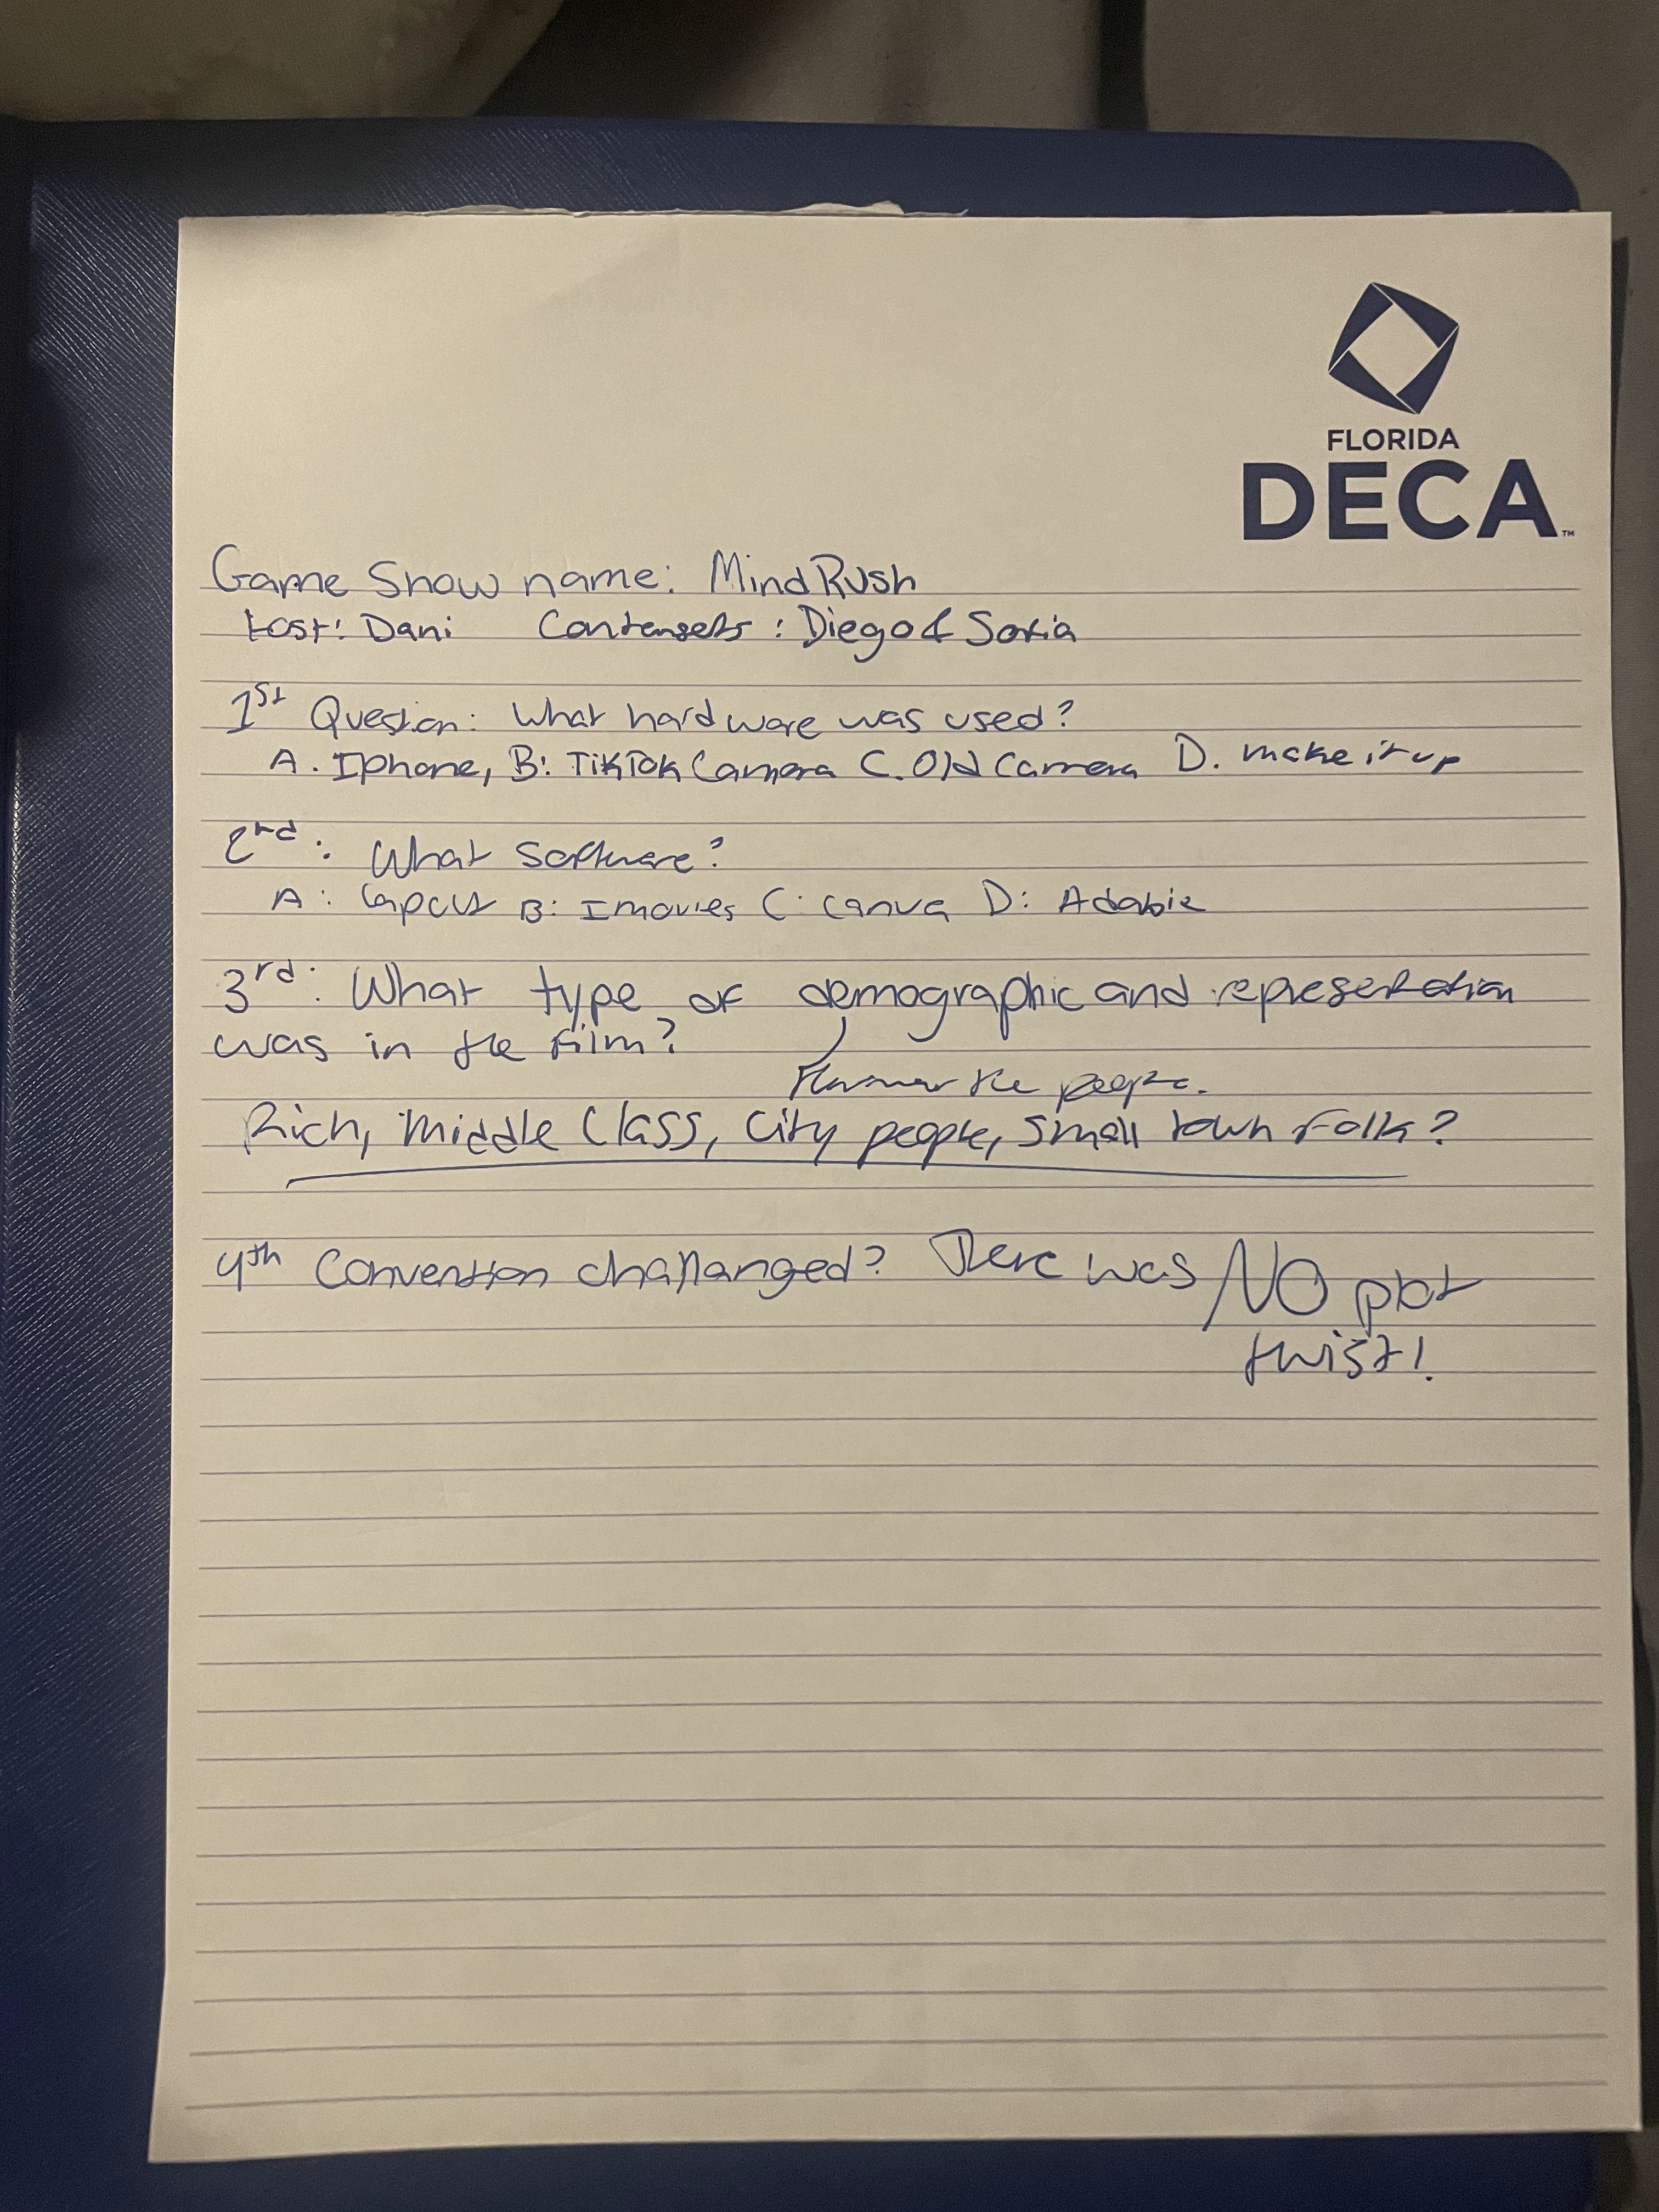 FLORIDA
DECA™
Game Show name: MindRush
Host: Dani Contensets: Diego & Sofia
1st Question: What hardware was used?
A. Iphone, B: TikTok Camera C. Old Camera D. make it up
2nd: What Software?
A: Capcut B: Imovies C: Canva D: Adobie
3rd: What type of demographic and representation
was in the film?
the people.
Rich, Middle Class, City people, small town folk?
4th Convention challanged? There was NO plot
twist!